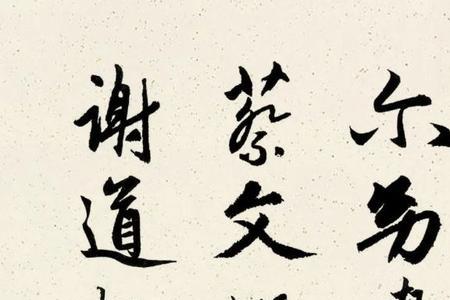 尔幼
蔡文
谢道